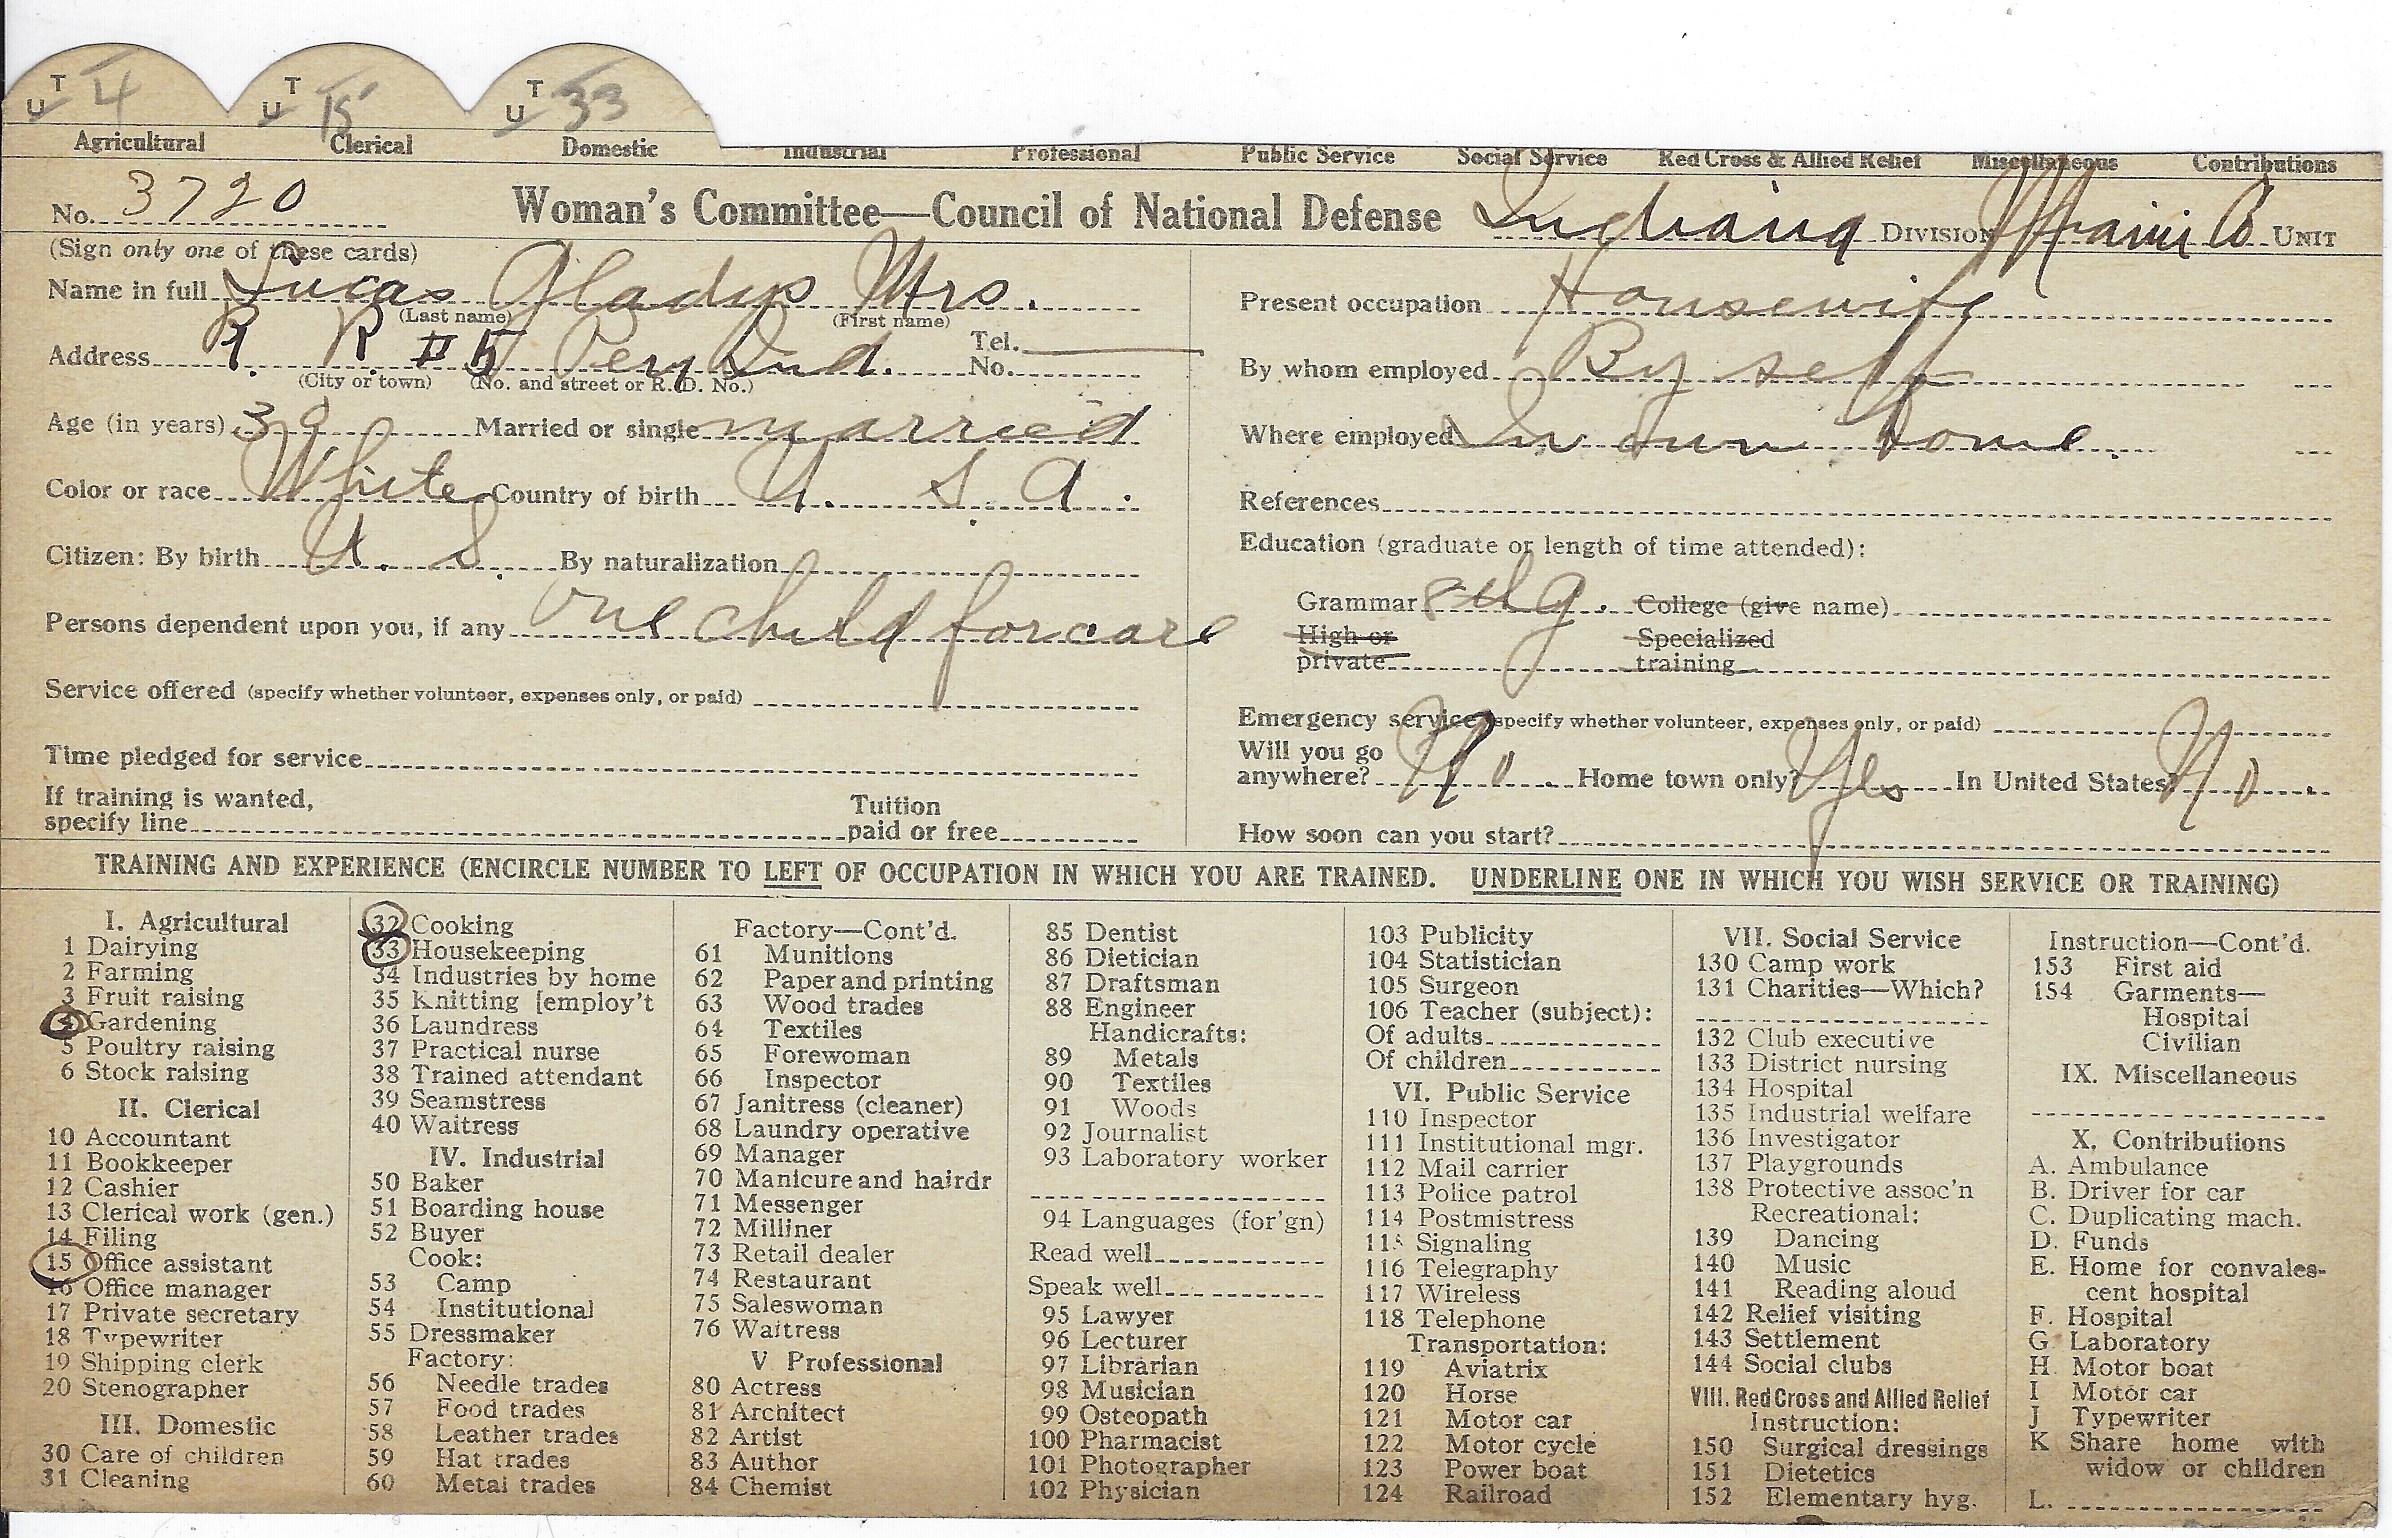 T U 4 T U 15 T U 33
Agricultural Clerical Domestic Industrial Professional Public Service Social Service Red Cross & Allied Relief Miscellaneous Contributions
No. 3720 Woman's Committee—Council of National Defense Indiana DIVISION Miami Co UNIT
(Sign only one of these cards)
Name in full Lucas Gladys Mrs.
(Last name) (First name)
Address R. R. # 5 Peru Ind. Tel. No.
(City or town) (No. and street or R. D. No.)
Age (in years) 39 Married or single married
Color or race White Country of birth U. S. A.
Citizen: By birth U. S. By naturalization
Persons dependent upon you, if any one child for care
Service offered (specify whether volunteer, expenses only, or paid)
Time pledged for service
If training is wanted,
specify line Tuition paid or free
Present occupation Housewife
By whom employed By self
Where employed In own home.
References
Education (graduate or length of time attended):
Grammar 8th g. College (give name)
High or private Specialized training
Emergency service (specify whether volunteer, expenses only, or paid)
Will you go
anywhere? No. Home town only? Yes In United States? No.
How soon can you start?
TRAINING AND EXPERIENCE (ENCIRCLE NUMBER TO LEFT OF OCCUPATION IN WHICH YOU ARE TRAINED. UNDERLINE ONE IN WHICH YOU WISH SERVICE OR TRAINING)
I. Agricultural
1 Dairying
2 Farming
3 Fruit raising
4 Gardening
5 Poultry raising
6 Stock raising
II. Clerical
10 Accountant
11 Bookkeeper
12 Cashier
13 Clerical work (gen.)
14 Filing
15 Office assistant
16 Office manager
17 Private secretary
18 Typewriter
19 Shipping clerk
20 Stenographer
III. Domestic
30 Care of children
31 Cleaning
32 Cooking
33 Housekeeping
34 Industries by home
35 Knitting [employ't
36 Laundress
37 Practical nurse
38 Trained attendant
39 Seamstress
40 Waitress
IV. Industrial
50 Baker
51 Boarding house
52 Buyer
Cook:
53 Camp
54 Institutional
55 Dressmaker
Factory:
56 Needle trades
57 Food trades
58 Leather trades
59 Hat trades
60 Metal trades
Factory—Cont'd.
61 Munitions
62 Paper and printing
63 Wood trades
64 Textiles
65 Forewoman
66 Inspector
67 Janitress (cleaner)
68 Laundry operative
69 Manager
70 Manicure and hairdr
71 Messenger
72 Milliner
73 Retail dealer
74 Restaurant
75 Saleswoman
76 Waitress
V Professional
80 Actress
81 Architect
82 Artist
83 Author
84 Chemist
85 Dentist
86 Dietician
87 Draftsman
88 Engineer
Handicrafts:
89 Metals
90 Textiles
91 Woods
92 Journalist
93 Laboratory worker
94 Languages (for'gn)
Read well
Speak well
95 Lawyer
96 Lecturer
97 Librarian
98 Musician
99 Osteopath
100 Pharmacist
101 Photographer
102 Physician
103 Publicity
104 Statistician
105 Surgeon
106 Teacher (subject):
Of adults
Of children
VI. Public Service
110 Inspector
111 Institutional mgr.
112 Mail carrier
113 Police patrol
114 Postmistress
115 Signaling
116 Telegraphy
117 Wireless
118 Telephone
Transportation:
119 Aviatrix
120 Horse
121 Motor car
122 Motor cycle
123 Power boat
124 Railroad
VII. Social Service
130 Camp work
131 Charities—Which?
132 Club executive
133 District nursing
134 Hospital
135 Industrial welfare
136 Investigator
137 Playgrounds
138 Protective assoc'n
Recreational:
139 Dancing
140 Music
141 Reading aloud
142 Relief visiting
143 Settlement
144 Social clubs
VIII. Red Cross and Allied Relief
Instruction:
150 Surgical dressings
151 Dietetics
152 Elementary hyg.
Instruction—Cont'd.
153 First aid
154 Garments—
Hospital
Civilian
IX. Miscellaneous
X. Contributions
A. Ambulance
B. Driver for car
C. Duplicating mach.
D. Funds
E. Home for convales-
cent hospital
F. Hospital
G Laboratory
H. Motor boat
I Motor car
J Typewriter
K Share home with
widow or children
L.